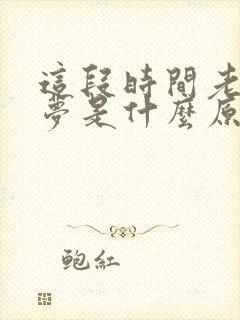 這段時間老
夢是什麼原
鮑紅